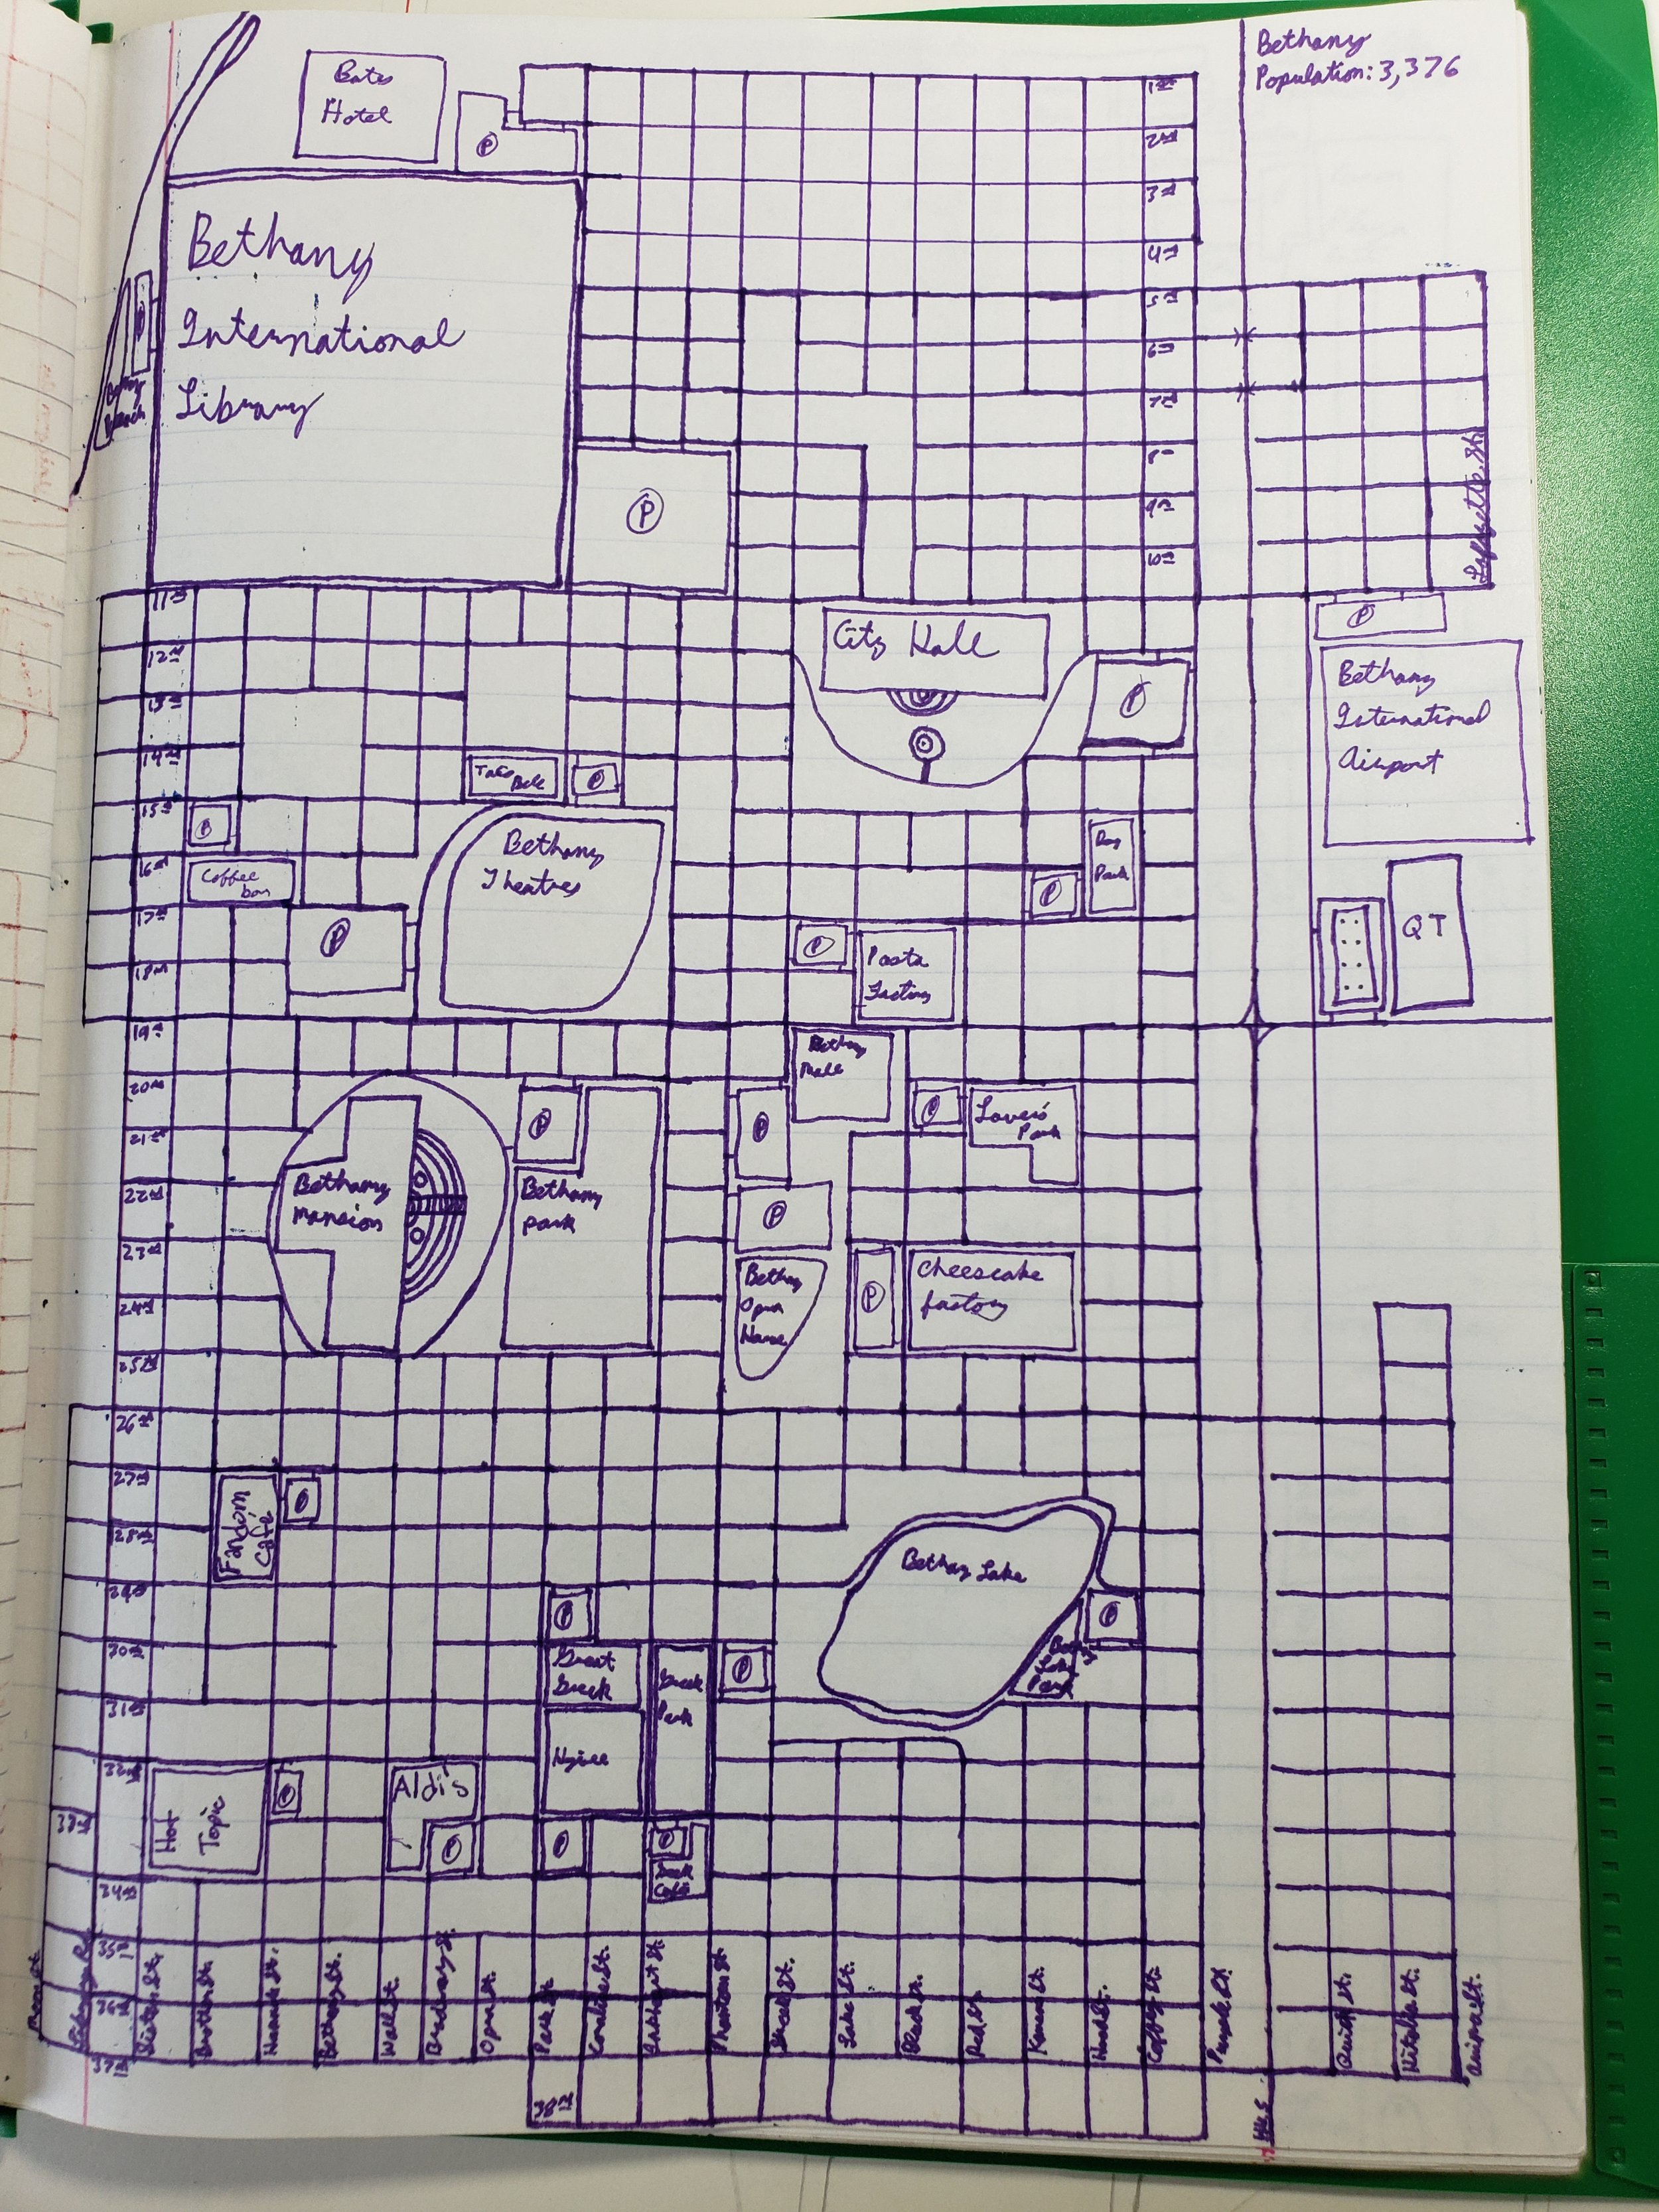 Bethany
Population: 3,376
Bates
Hotel
P
1st
2nd
3rd
4th
5th
6th
7th
8th
9th
10th
Bethany
International
Library
P
Lafayette St.
11th
12th
13th
14th
15th
16th
17th
18th
19th
City Hall
P
P
Bethany
International
Airport
Taco
Bell
P
P
Coffee
bar
P
Bethany
Theatres
Dog
Park
P
P
Pasta
Factory
QT
20th
21st
22nd
23rd
24th
25th
26th
Bethany
Mall
P
P
P
Lovers'
Park
Bethany
Mansion
Bethany
park
P
Bethany
Open
House
P
Cheesecake
factory
27th
28th
29th
30th
31st
32nd
33rd
34th
35th
36th
37th
38th
Fandom
Café
P
Bethany Lake
P
Bethany
Lake
Park
P
Great
Greek
Greek
Park
P
Hot
Topic
P
Aldi's
P
P
P
Greek
Café
Sister St.
Brother St.
Hannah St.
Bethany St.
Wall St.
Broadway St.
Opera St.
Park St.
Caroline St.
Thornton St.
Greek St.
Lake St.
Black St.
Red St.
Kansas St.
Hood St.
Coffey St.
Purple St.
Quick St.
Airport St.